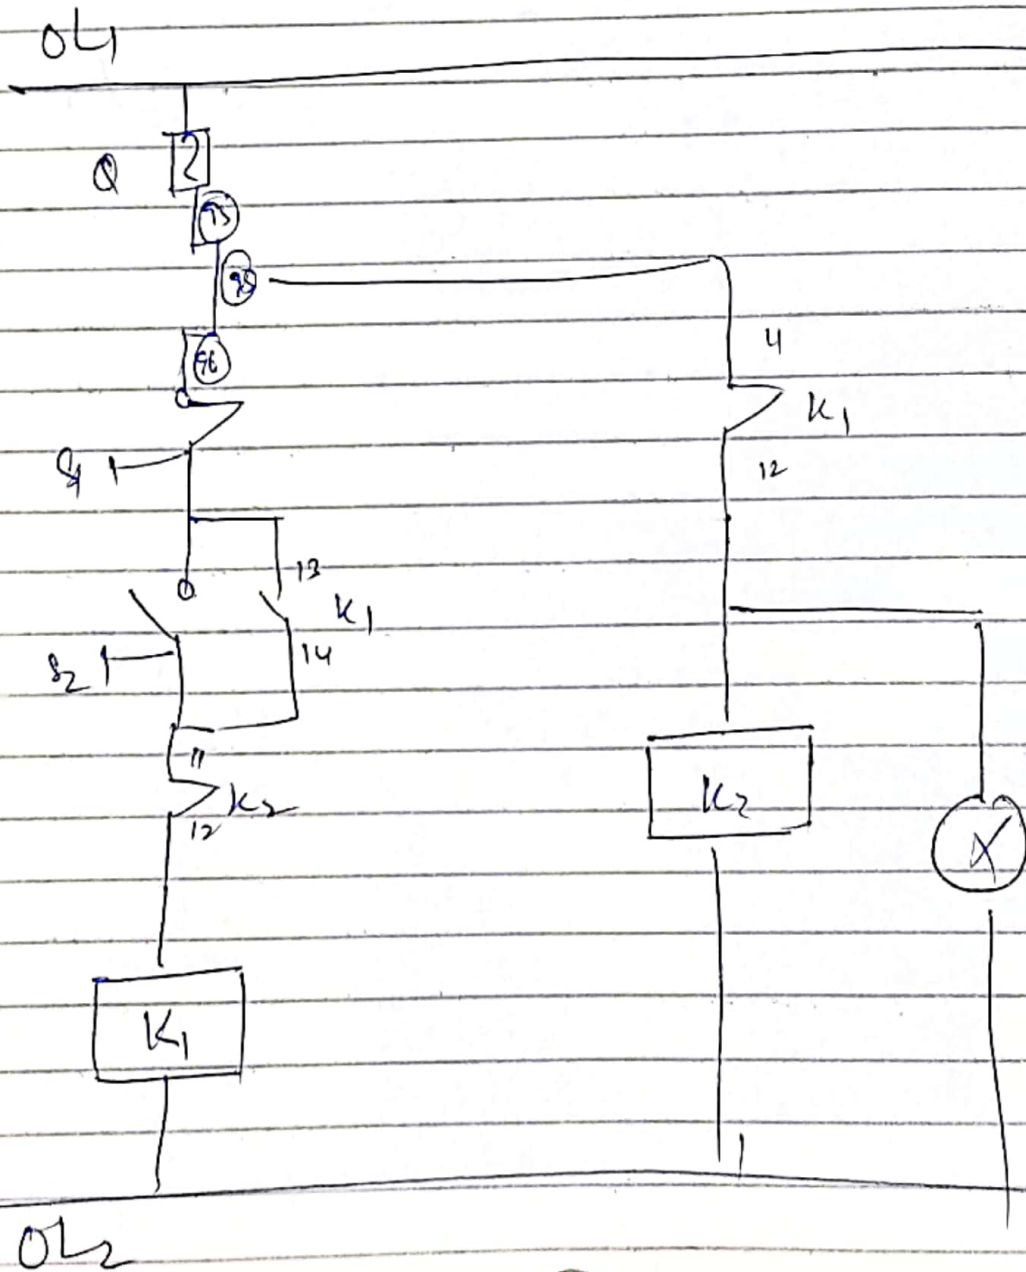 OL1
Q
95
98
96
4
K1
S1
12
13
K1
14
S2
11
K2
12
K2
X
K1
OL2